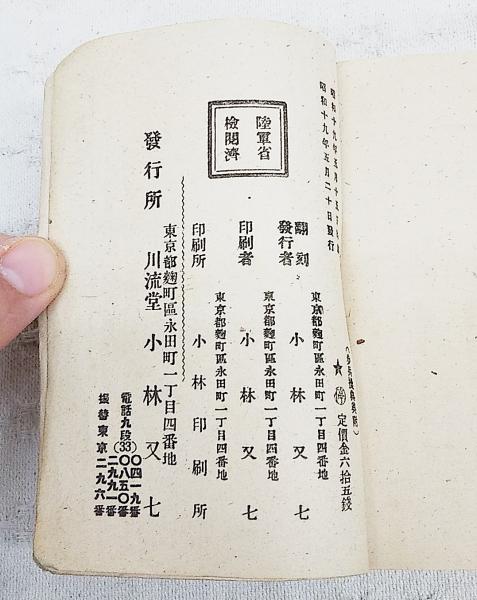 昭和十九年五月十五日
昭和十九年五月二十日發行
停 定價金六拾五錢
★
東京都麴町區永田町一丁目四番地
翻刻
發行者
小林又七
東京都麴町區永田町一丁目四番地
印刷者
小林又七
東京都麴町區永田町一丁目四番地
印刷所
小林印刷所
陸軍省
檢閲濟
東京都麴町區永田町一丁目四番地
發行所
川流堂 小林又七
電話九段(33)
〇四一九番
〇八五〇番
二九九一番
振替東京二九六番